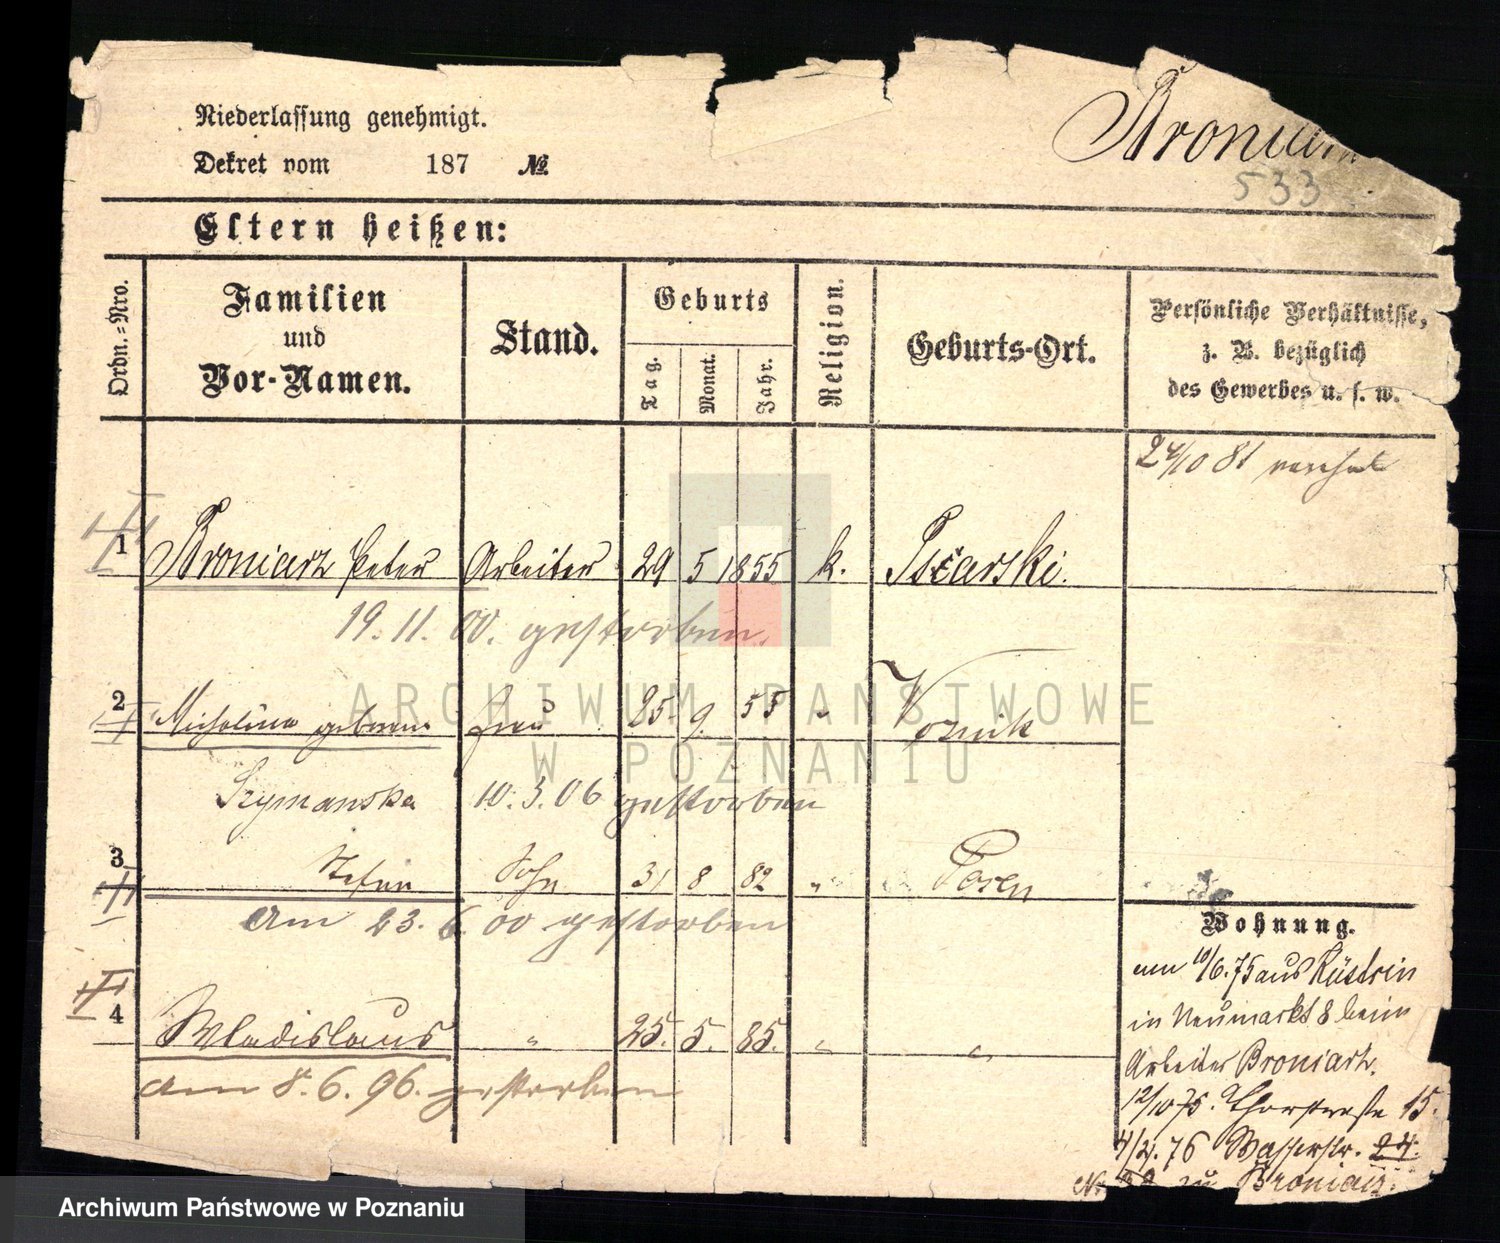 Niederlassung genehmigt.
Dekret vom 187 №
533
Eltern heißen:
Ordn.=Nro.
Familien
und
Vor-Namen.
Stand.
Geburts
Tag.
Monat.
Jahr.
Religion.
Geburts-Ort.
Persönliche Verhältnisse,
z. B. bezüglich
des Gewerbes u. s. w.
24/10 81
1 Broniarz Peter Arbeiter 29 5 1855 k. Psčarski.
19. 11. 00. gestorben.
2 Michalina geborene Frau 25. 9. 55 " Woznik
Szymanska 10. 3. 06 gestorben
3 Stefan Sohn 31 8 82 " Posen
am 23. 6. 00 gestorben
4 Wladislaus " 25. 5. 85. " "
am 8. 6. 96. gestorben
Wohnung.
am 10/6. 75 aus Küstrin
in Neumarkt 8 beim
Arbeiter Broniarz.
12/10 75. Thorstraße 15.
4/4. 76 Wasserstr. 24.
zu Broniarz.
ARCHIWUM PAŃSTWOWE
W POZNANIU
Archiwum Państwowe w Poznaniu